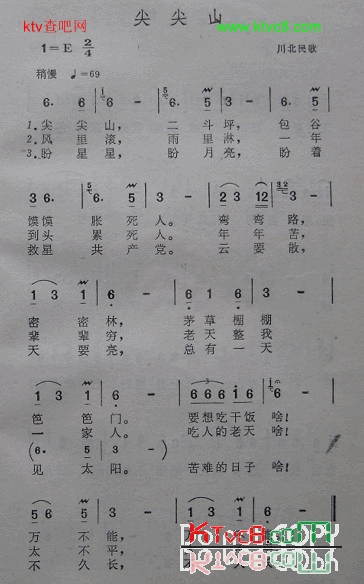 ktv查吧网
www.ktv8.com
尖尖山
1=E 2/4
川北民歌
稍慢 ♩=69
6· 5 6 - 6· 5 3 - 6· 5
1.尖尖山， 二斗坪， 包谷
2.风里滚， 雨里淋， 一年
3.盼星星， 盼月亮， 盼着
3 6· 6· 5 3 - 2 3 12 3
馍馍胀死人。 弯弯路，
到头累死人。 年年苦，
救星共产党。 云要散，
1 3 1 6 - 3 5 1 3
密密林， 茅草棚棚
辈辈穷， 老天整我
天要亮， 总有一天
6· 1 3 1 6 - 6 6 6 1 3 6
笆笆门。 要想吃干饭啥！
一家人。 吃人的老天啥！
(6· 5 3 -)
见太阳。 苦难的日子啥！
5 6 5 3 - 1 3
万不能， 万
太不平， 太
不久长， 不
Ktv8.com